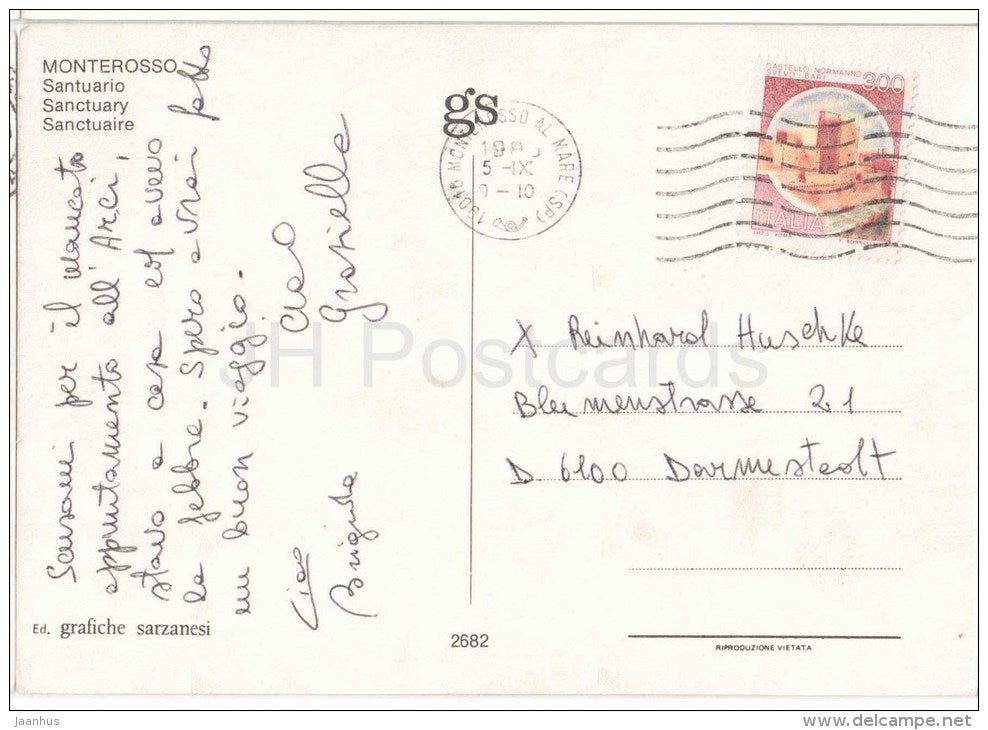 MONTEROSSO
Santuario
Sanctuary
Sanctuaire
Scusami per il mancato
appuntamento all'Arci,
stavo a casa ed avevo
la febbre. Spero avrai fatto
un buon viaggio.
Ciao
Ciao
Brigida
gs
MONTEROSSO AL MARE (SP)
5 -IX
9 - 10
CASTELLO NORMANNO
SVEVO BARI
300
ITALIA
X Reinhard Huschke
Blumenstrasse 21
D 6100 Darmestadt
JH Postcards
Ed. grafiche sarzanesi
2682
RIPRODUZIONE VIETATA
Jaanhus
www.delcampe.net